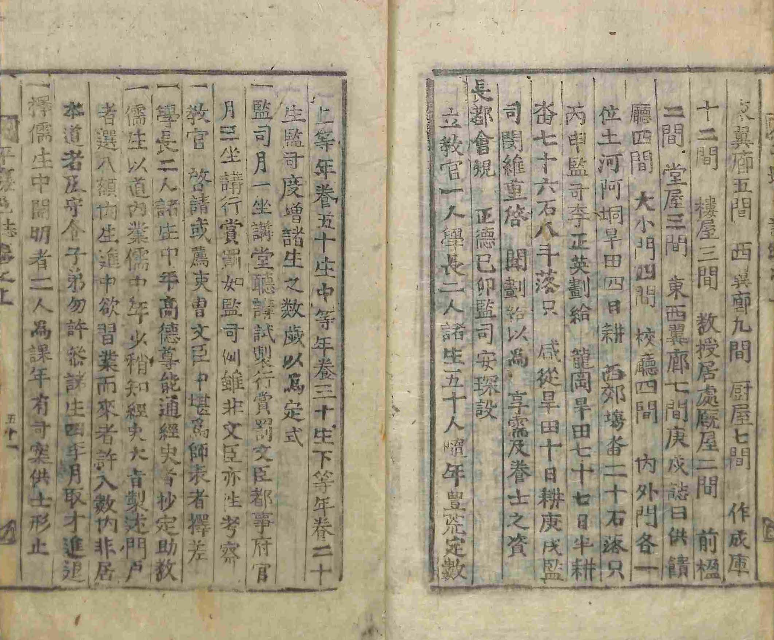 東翼廊五間 西翼廊九間 厨屋七間 作成庫
十二間 樓屋三間 教授居處廳屋二間 前楹
二間 堂屋三間 東西翼廊七間庚戌 曰供饋
廳四間 大小門四間 校廳四間 內外門各一
位土河阿 旱田四日耕 西郊 畓二十石落只
丙申監司李正英劃給 龍岡旱田七十七日半耕
畓七十六石八斗落只 咸從旱田十日耕庚戌監
司閔維重啓 聞劃給以爲 享需及養士之資
長都會規 正德己卯監司安琛設
立教官一人學長二人諸生五十人隨年豊荒定數
上等年養五十生中等年養三十生下等年養二十
生監司度增諸生之數歲以爲定式
一監司月一坐講堂聽講試製行賞罰文臣都事府官
月三坐講行賞罰如監司例雖非文臣亦往考察
一教官 啓請或薦吏曹文臣中堪爲師表者擇差
一學長二人諸生中年高德尊能通經史者抄定助教
一儒生以道內業儒中年少稍知經史大旨製述門戶
者選入額內生進中欲習業而來者許入數內非居
本道者及守令子弟勿許 諸生四孟月取才進退
一擇儒生中開明者二人爲課年有司 供士形止